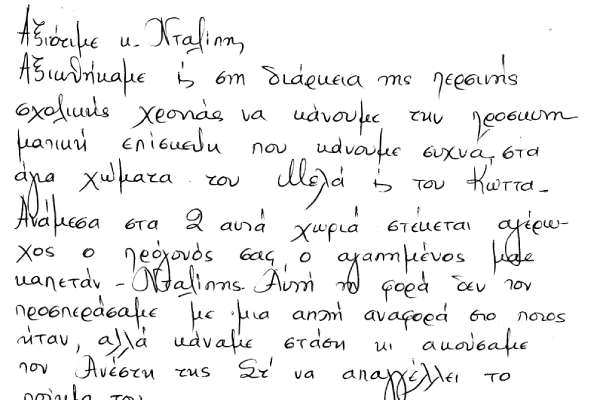 Αξιότιμε κ. Νταλίπη
Αξιωθήκαμε κ' στη διάρκεια της περσινής
σχολικής χρονιάς να κάνουμε την προσκυνη
ματική επίσκεψη που κάνουμε συχνά, στα
άγια χώματα του Μελά κ' του Κώττα.
Ανάμεσα στα 2 αυτά χωριά στέκεται αγέρω-
χος ο πρόγονός σας, ο αγαπημένος μας
καπετάν - Νταλίπης. Αυτή τη φορά δεν τον
προσπεράσαμε με μια απλή αναφορά στο ποιος
ήταν, αλλά κάναμε στάση κι ακούσαμε
τον Ανέστη της Στ' να απαγγέλλει το
ποίημα του